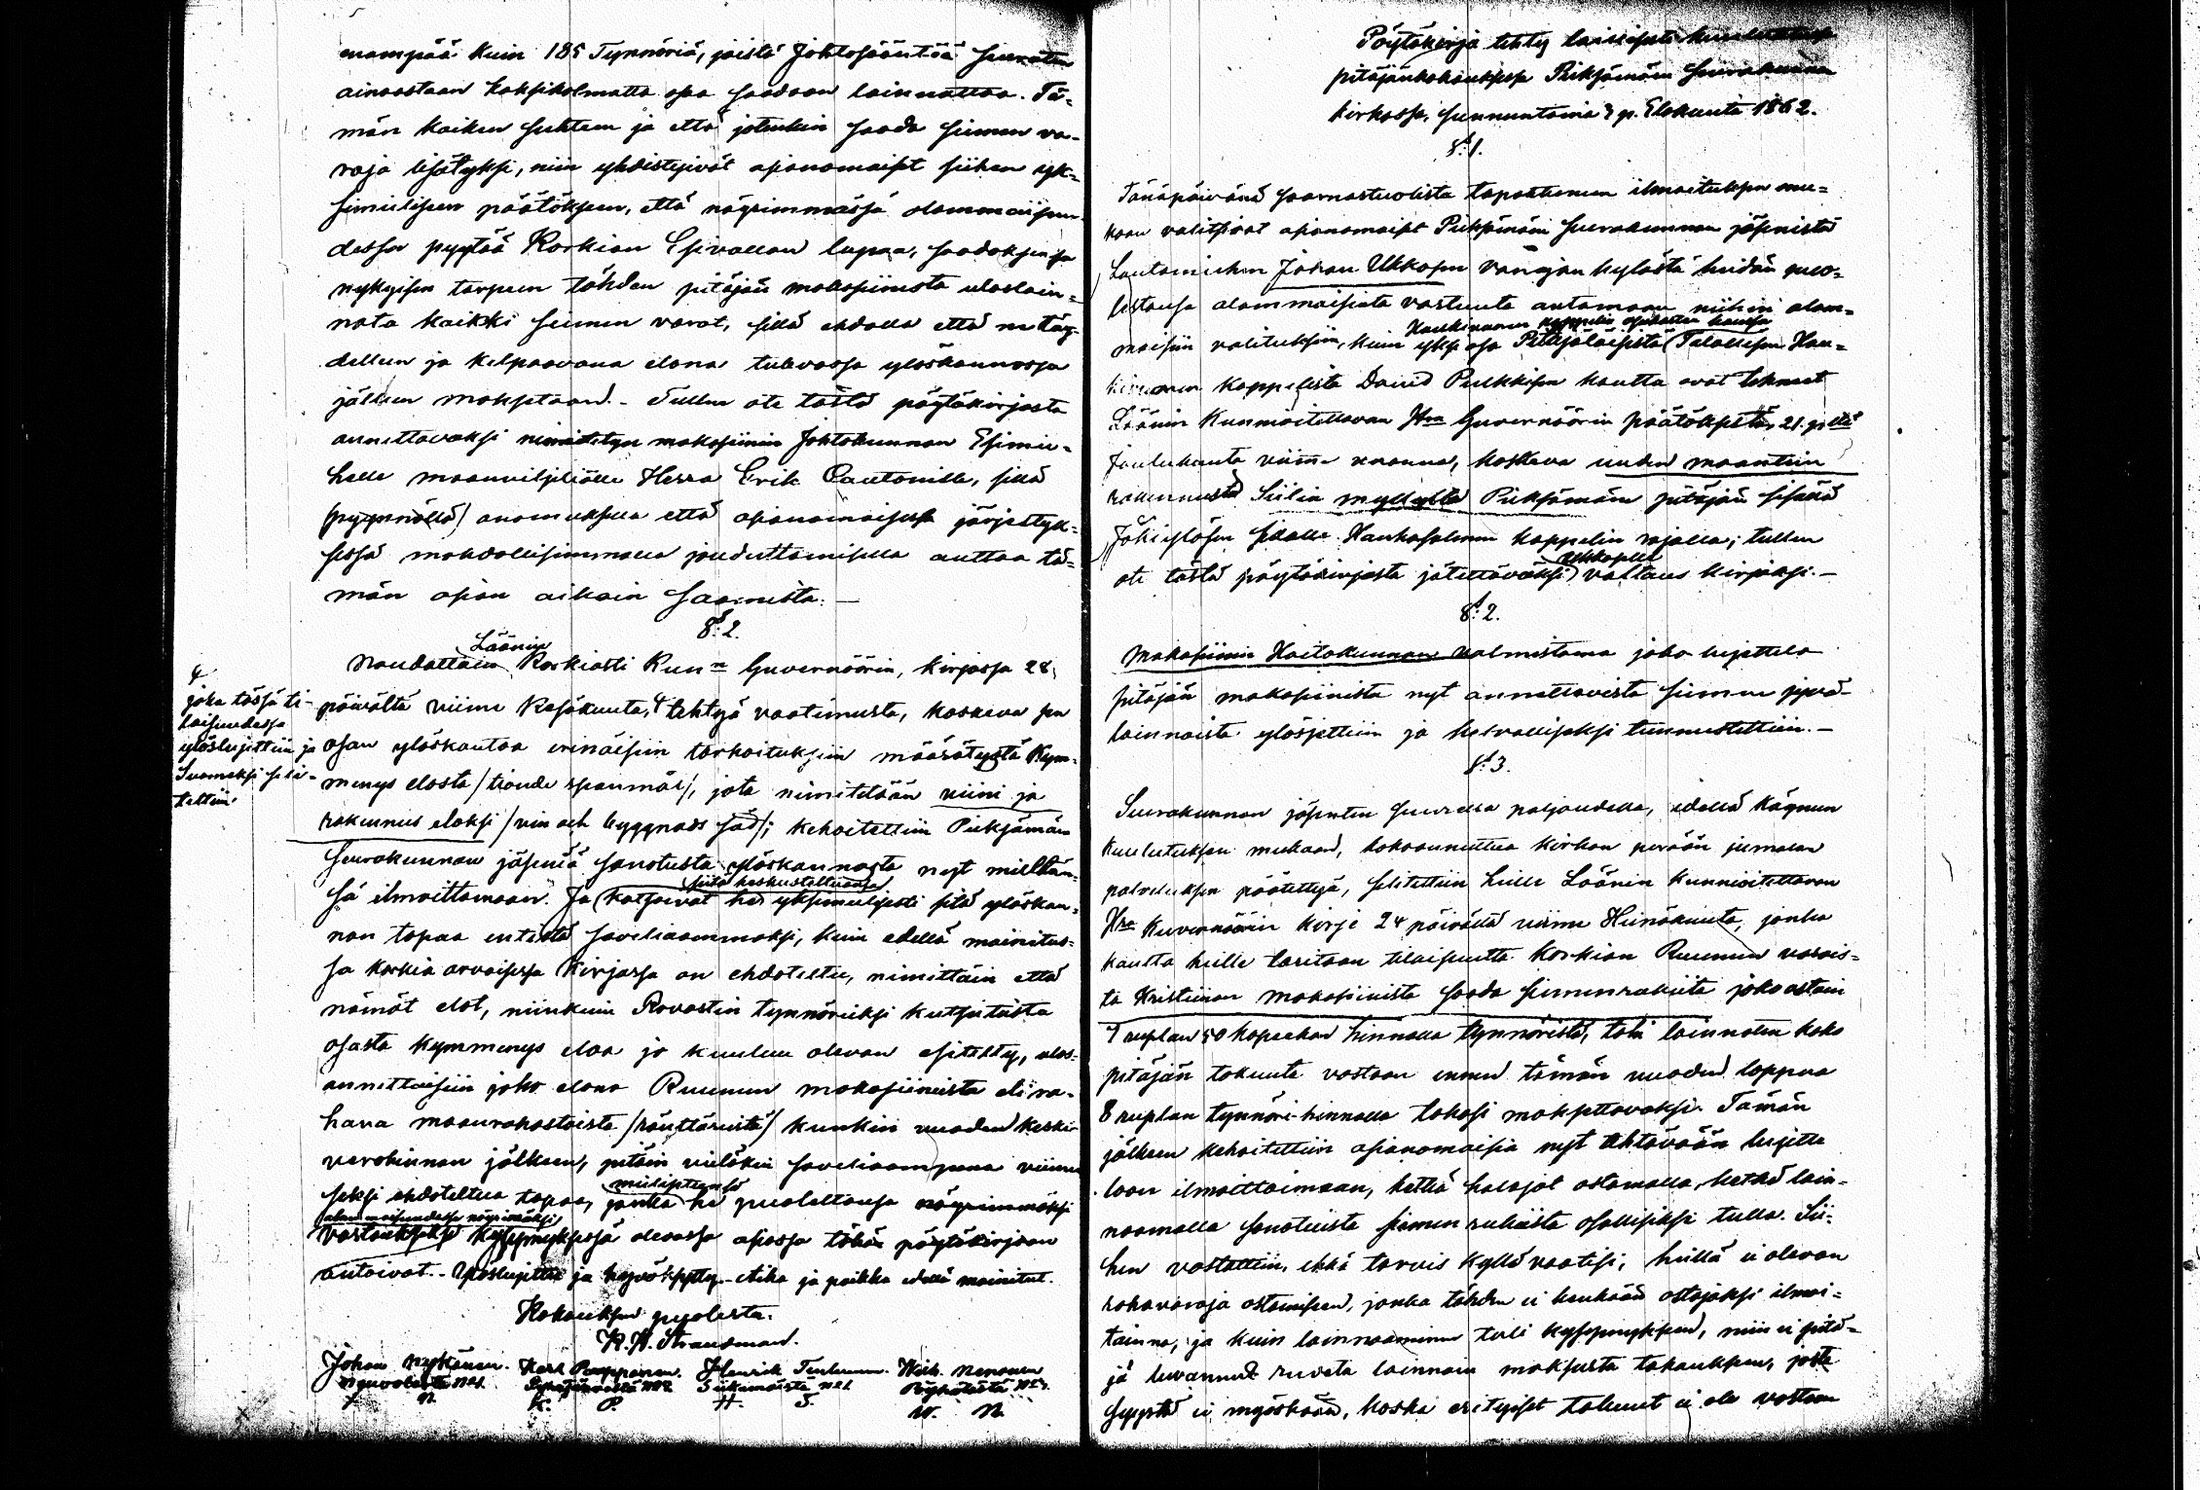 enempää kuin 185 Tynnöriä, joista Johtosääntöä seuraten
ainoastaan kaksikolmatta osa saadaan lainnattaa. Tä-
män kaiken suhteen ja että jotenkin saada siemen va-
raja lisätyksi, niin yhdistysivät asianomaiset siihen yk-
simielisen päätöksen, että nöyrimmässä alammaisuu-
dessa pyytää Korkian Esivallan lupaa, saadaksensa
nykyisen tarpeen tähden pitäjän makasiinista uloslain-
nata kaikki siemen varat, sillä ehdolla että ne täy-
delleen ja kelpaavana elona tulevassa ylöskannossa
jälleen maksetaan. - Tullen ote tästä pöytäkirjasta
annettavaksi nimitetyn makasiinin Johtokunnan Esimie-
helle maanviljeliälle Herra Erik Pautonille, sillä
(pyynnöllä) anomuksella että asianomaisessa järjestyk-
sessä mahdollisimmalla jouduttamisella auttaa tä-
män asian aikain saamista. —
§ 2.
Läänin
Noudattain Korkiasti Kun:n Guvernöörin, kirjassa 28
päivältä viime Kesäkuuta, 4 tehtyä vaatimusta, koskeva sen
4
joka tässä ti-
laisuudessa
ylösluettiin ja
Suomeksi seli-
tettiin.
osan ylöskantoa erinäisiin tarkoituksiin määrätystä Kym-
menys elosta /tionde spanmål/, jota nimitetään viini ja
rakennus eloksi /vin och byggnads säd/; kehoitettiin Pieksämän
seurakunnan jäseniä sanotusta ylöskannosta nyt mieltän-
siitä keskusteltuansa
sä ilmoittamaan. Ja katsoivat he yksimielisesti sitä ylöskan-
non tapaa entistä soveliaammaksi, kuin edellä mainitus-
sa korkia arvoisessa kirjassa on ehdoteltu, nimittäin että
nämät elot, niinkuin Rovastin tynnöreiksi kutsutusta
osasta kymmenys eloa jo kuuluu olevan esitelty, ulos-
annettaisiin joko elona Ruunun makasiineista eli ra-
hana maanrahastoista /ränttäreistä/ kunkin vuoden keski-
verohinnan jälkeen, pitäin vieläkin soveliaampana viime
mielipiteensä
seksi ehdoteltua tapaa, jonka he puoleltansa nöyrimmäksi
alammaisuudessa nöyrimäksi
vastaukseksi kysymyksessä olevassa asiassa tähän pöytäkirjaan
antoivat. - Ylösluettu ja hyväksytty - Aika ja paikka edellä mainitut.
Kokouksen puolesta.
K. H. Strandman.
Johan Nykänen. Karl Papponen. Henrik Tenhunen. Wilh. Nenonen
N:o 1. N:o 2. Siikamäistä N:o 1.
J. N. K. P. H. T. W. N.
Pöytäkirja tehty laillisesti kuulutetussa
pitäjänkokouksessa Pieksämän seurakunnan
kirkossa, sunnuntaina 3 p. Elokuuta 1862.
§ 1.
Tänäpäivänä saarnastuolista tapahtuneen ilmoituksen mu-
kaan valitsivat asianomaiset Pieksämän seurakunnan jäsenistä
Lautamiehen Johan Ukkosen Vanajan kylästä heidän puo-
lestansa alammaisinta vastuuta antamaan niihin alam-
Haukivuoren kappelin asukasten kanssa
maisiin valituksiin, kuin yksi osa Pitäjäläisistä Talollisen Hau-
kivuoren kappelista David Pulkkisen kautta ovat tehneet
Läänin Kunnioitettavan H:ra Guvernöörin päätöksestä, 21 p:ltä
Joulukuuta viime vuonna, koskeva uuden maantien
rakennusta Siilin myllyltä Pieksämän pitäjän sisällä
Jökistösen sillalle Hankasalmen kappelin rajalla; tullen
Ukkoselle
ote tästä pöytäkirjasta jätettäväksi valtaus kirjaksi. —
§ 2.
Makasiinin Hoitokunnan valmistama jako luettelo
pitäjän makasiinista nyt annettavista siemen jyvä-
lainoista ylösluettiin ja kelvolliseksi tunnustettiin. —
§ 3.
Seurakunnan jäsenten suurella paljoudella, edellä käyneen
kuulutuksen mukaan, kokoonnuttua kirkon perään jumalan
palveluksen päätettyä, selitettiin heille Läänin Kunnioitettavan
H:ra Kuvernöörin kirje 24 päivältä viime Heinäkuuta, jonka
kautta heille taritaan tilaisuutta Korkian Ruunun varois-
ta Kristiinan makasiinista saada siemenrukiita joko ostain
7 ruplan 50 kopeekan hinnalla tynnöristä, tahi lainaten koko
pitäjän takuuta vastaan ennen tämän vuoden loppua
8 ruplan tynnöri-hinnalla takasi maksettavaksi. Tämän
jälkeen kehoitettiin asianomaisia nyt tehtävään luette-
loon ilmoittaimaan, ketkä halajat ostamalla, ketkä lain-
naamalla sanotuista siemen rukiista osallisiksi tulla. Sii-
hen vastattiin, ehkä tarvis kyllä vaatisi, heillä ei olevan
rahavaroja ostamiseen, jonka tähden ei kenkään ostajaksi ilmoi-
tainna, ja kuin lainnaaminen tuli kysymykseen, niin ei pitä-
jä luvannut ruveta lainnan maksusta takaukseen, josta
syystä ei myöskään, koska erityiset takuut ei ole vastaan